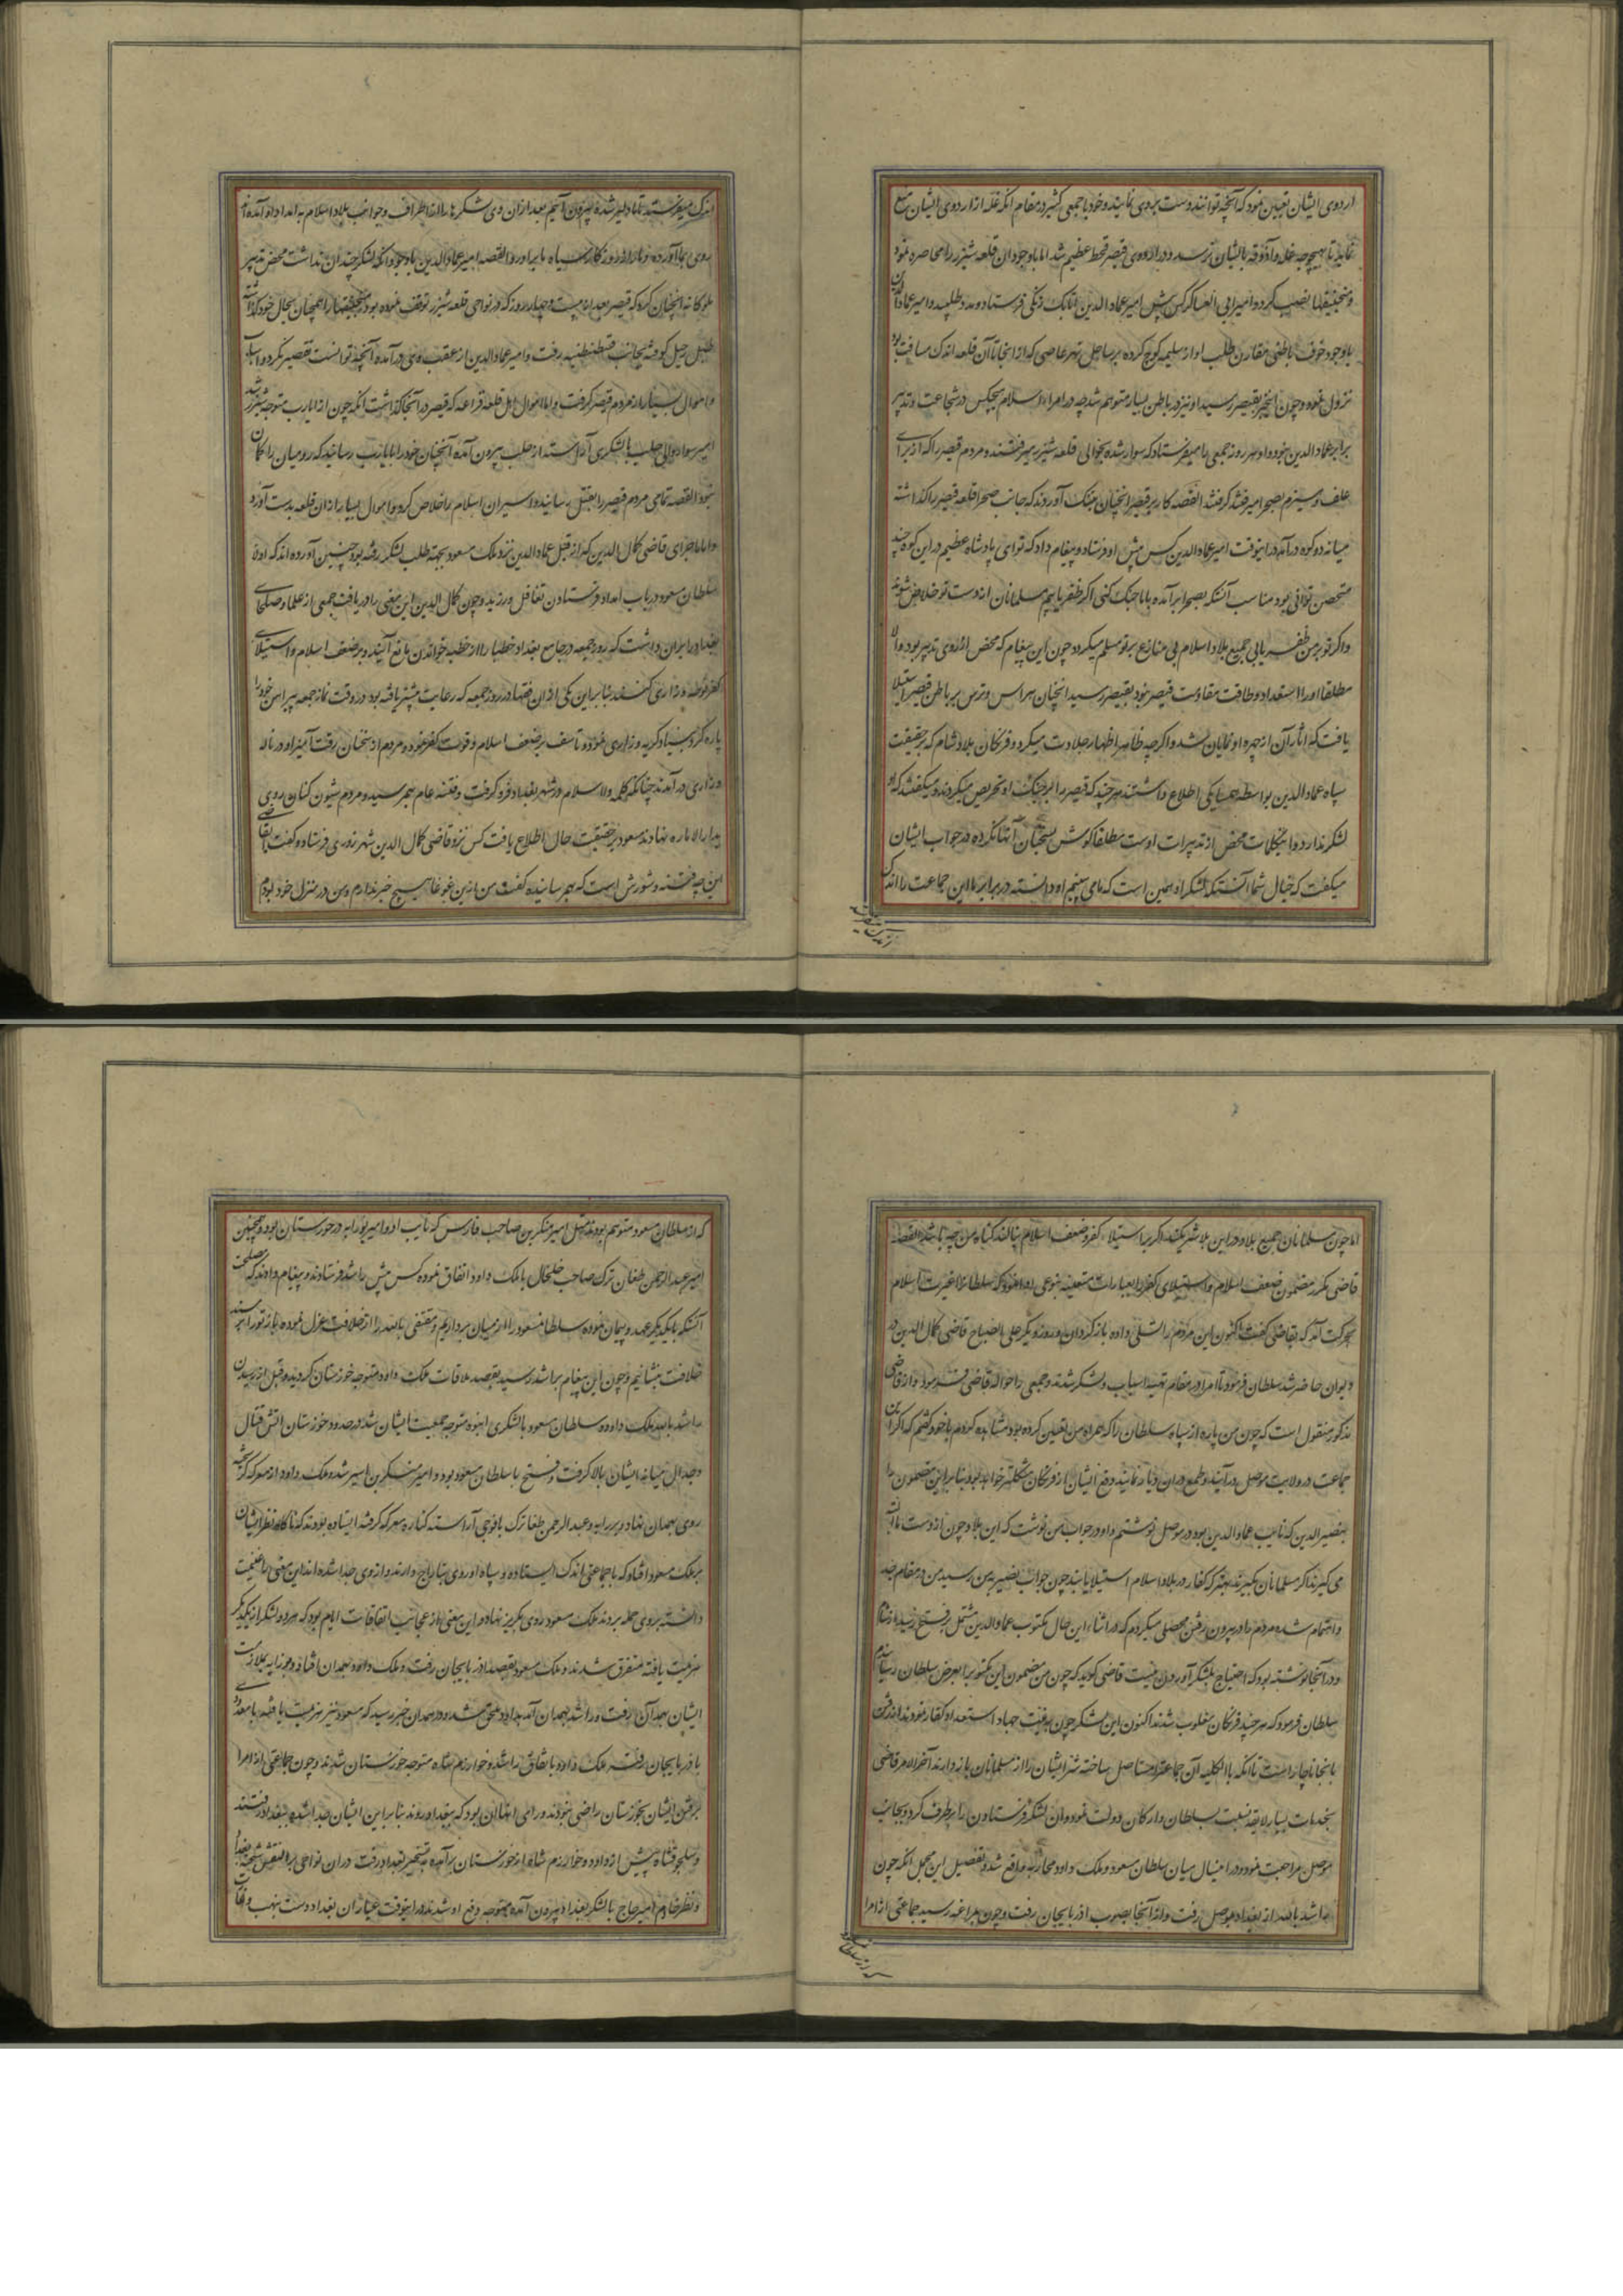 اردوی ایشان تعیین نمود که آنچه توانند دست بردی نمایند و خود با جمعی کثیر در مقام آنکه غله از اردوی ایشان منع
نمایند تا بهیچ وجه غله و آذوقه بایشان نرسد و در اردوی قیصر قحط عظیم شد اما باوجود آن قلعه شیزر را محاصره نمود
و منجنیقها نصب کرد و امیر ابی العساکر کس پیش امیر عماد الدین اتابک زنکی فرستاد و مدد طلبید و امیر عماد الدین
باوجود خوف باطنی مقارن طلب او از سلیمه کوچ کرده بر ساحل نهر عاصی که از انجا تا آن قلعه اندک مسافت بود
نزول نموده و چون اینخبر بقیصر رسید او نیز در باطن بسیار متوهم شد چه در امراء اسلام هیچکس در شجاعت و تدبیر
برابر عماد الدین نبود و او هر روز جمعی را میفرستاد که سوار شده بحوالی قلعه شیزر میرفتند و مردم قیصر را که از برای
علف و هیزم بصحرا میرفتند گرفتند القصه کار بر قیصر انچنان تنک آوردند که جانب صحرا قلعه قیصر را کذاشته
میانه دو کوه در آمد در اینوقت امیر عماد الدین کس پیش او فرستاد و پیغام داد که تو ای پادشاه عظیم در این کوه چند
متحصن توانی بود مناسب آنستکه بصحرا بر آمده با ما جنک کنی اکر ظفر یابیم مسلمانان از دست تو خلاص شوند
و اکر تو بر من ظفر یابی جمیع بلاد اسلام بی منازع بر تو مسلم میکردد چون این پیغام که محض از روی تدبیر بود والا
مطلقا او را استعداد و طاقت مقاومت قیصر نبود بقیصر رسید انچنان هراس و ترس بر باطن قیصر استیلا
یافت که اثار آن از چهره او نمایان شد و اکرچه بظاهر اظهار جلادت میکرد و فرنکان بلاد شام که بر حقیقت
سپاه عماد الدین بواسطه همسایکی اطلاع داشتند هرچند که قیصر را بر جنک او تحریص میکردند و میکفتند که او
لشکر ندارد و اینکلمات محض از تدبیرات اوست مطلقا کوش بسخنان آنها نکرده در جواب ایشان
میکفت که خیال شما آنستکه لشکر او همین است که ما می بینیم او دانسته در برابر ما این جماعت را اندک
اندک میفرستد تا ما دلیر شده بیرون آییم بعد از ان وی لشکرها را از اطراف و جوانب بلاد اسلام به امداد او آمده
روی بما آورده دمار از روزکار سپاه ما برآورد القصه امیر عماد الدین باوجود آنکه لشکر چندان نداشت محض تدبیر
ملوکانه انچنان کرد که قیصر بعد از بیست و چهار روز که در نواحی قلعه شیزر توقف نموده بود منجنیقها را همچنان بحال خود کذاشته
طبل رحیل کوفته بجانب قسطنطنیه رفت و امیر عماد الدین از عقب وی در آمده آنچه توانست تقصیر نکرد و اسباب
و اموال بسیار از مردم قیصر کرفت و اما احوال اهل قلعه بزاعه که قیصر در آنجا کذاشت آنکه چون از ان یارب متوجه شیزر شد
امیر سوار والی حلب با لشکری آراسته از حلب بیرون آمده آنچنان خود را بانیارب رسانید که رومیان را کمان
نبود القصه تمامی مردم قیصر را بقتل رسانیده اسیران اسلام را خلاص کرد و اموال بسیار از ان قلعه بدست آورد
و اما ماجرای قاضی کمال الدین که از قبل عماد الدین نزد ملک مسعود بجهة طلب لشکر رفته بود چنین آورده اند که اول
سلطان مسعود در باب امداد فرستادن تغافل ورزید و چون کمال الدین این معنی را دریافت جمعی از علما و صلحای
بغداد را بر ان داشت که روز جمعه در جامع بغداد خطبا را از خطبه خواندن مانع آیند و بر ضعف اسلام و استیلای
کفر نوحه و زاری کنند بنا بر این یکی از ان فقها در روز جمعه که رعایت بیشتر یافته بود در وقت نماز جمعه پیراهن خود را
پاره کرده بنیاد کریه و زاری نموده تاسف بر ضعف اسلام و قوت کفر نمود و مردم از سخنان رقت آمیز او در ناله
و زاری در آمدند چنانکه کلمه ولا اسلام در شهر بغداد فرو کرفت و فتنه عام بهم رسید و مردم شیون کنان روی
بدار الاماره نهادند مسعود بر حقیقت حال اطلاع یافت کس نزد قاضی کمال الدین شهرزوری فرستاد و کفت
این چه فتنه و شورش است که بهم رسانیده کفت من از ین غوغا هیچ خبر ندارم و من در منزل خود بودم
اما چون مسلمانان جمیع بلاد در این بلا شریکند اکر بر استیلاء کفر و ضعف اسلام بنالند کناه من چه باشد القصه
قاضی مکرر مضمون ضعف اسلام و استیلای کفر را بعبارات متعینه بنوعی ادا نمود که سلطان را غیرت اسلام
بحرکت آمد که بقاضی کفت اکنون این مردم را تسلی داده باز کردان و روز دیکر علی الصباح قاضی کمال الدین در
دیوان حاضر شد سلطان فرمود تا امرا در مقام تهیه اسباب و لشکر شدند و جمعی را حواله قاضی فرمود و از قاضی
مذکور منقول است که چون من پاره از سپاه سلطان را که همراه من تعیین کرده بود مشاهده کردم با خود کفتم که اکر این
جماعت در ولایت موصل در آیند و طمع در ان دیار نمایند دفع ایشان از فرنکان مشکلتر خواهد بود بنا بر این مضمون را
بنصیر الدین که نایب عماد الدین بود در موصل نوشتم و او در جواب من نوشت که این بلاد چون از دست ما البته
می کیرند اکر مسلمانان بکیرند بهتر که کفار در بلاد اسلام استیلا یابند چون جواب نصیر بمن رسید من در مقام جد
و اهتمام شده مردم را در بیرون رفتن محصلی میکردم که در اثناء این حال مکتوب عماد الدین مشتمل بر فتح رسید
و در آنجا نوشته بود که احتیاج بلشکر آوردن نیست قاضی کوید که چون من مضمون این مکتوب را بعرض سلطان رسانیدم
سلطان فرمود که هرچند فرنکان مغلوب شدند اکنون این لشکر چون به نیت جهاد استعداد کفار نموده اند رفتن
بانجا ناچار است تا آنکه بالکلیه آن جماعت را مستاصل ساخته شر ایشان را از مسلمانان باز دارند آخر الامر قاضی
بخدمات بسیار لایقه نسبت بسلطان و ارکان دولت نمود و آن لشکر فرستادن را برطرف کرد و بجانب
موصل مراجعت نمود و در اینسال میان سلطان مسعود و ملک داود محاربه واقع شد و تفصیل این مجمل آنکه چون
راشد بالله از بغداد بموصل رفت و از آنجا بصوب اذربایجان رفت و چون بمراغه رسید جماعتی از امرا
که از سلطان مسعود متوهم بودند مثل امیر منکبرس صاحب فارس که نایب او و امیر بوزابه در خوزستان بود و همچنین
امیر عبد الرحمن طغان ترک صاحب خلخال با ملک داود اتفاق نموده کس پیش راشد فرستادند و پیغام دادند که مصلحت
آنستکه با یکدیکر عهد و پیمان نموده سلطان مسعود را از میان برداریم و مقتفی بالله را از خلافت عزل نموده باز تو را بر مسند
خلافت بنشانیم و چون این پیغام براشد رسید بقصد ملاقات ملک داود متوجه خوزستان کردید و قبل از رسیدن
راشد بالله بملک داود سلطان مسعود با لشکری انبوه متوجه جمعیت ایشان شد در حدود خوزستان اتش قتال
و جدال میانه ایشان بالا کرفت و فتح با سلطان مسعود بود و امیر منکبرس اسیر شد و ملک داود از معرکه کریخته
روی بهمدان نهاد و بوزابه و عبد الرحمن طغا ترک با فوجی آراسته کناره معرکه کرفته ایستاده بودند که ناکاه نظر ایشان
بر ملک مسعود افتاد که با جماعتی اندک ایستاده و سپاه او روی بتاراج دارند و از وی جدا شده اند این معنی را غنیمت
دانسته بروی حمله بردند ملک مسعود روی بکریز نهاد و این معنی از عجایب اتفاقات ایام بود که هر دو لشکر از یکدیکر
هزیمت یافته متفرق شدند و ملک مسعود بقصد اذربایجان رفت و ملک داود بهمدان افتاد و بوزابه بملازمت
ایشان بهمدان رفت و راشد بهمدان آمد بداود ملحق شد و در همدان خبر رسید که مسعود نیز هزیمت یافته با معدودی
باذربایجان رفت ملک داود باتفاق راشد و خوارزم شاه متوجه خوزستان شدند و چون جماعتی از امرا
برفتن ایشان بخوزستان راضی نبودند و رای انها این بود که ببغداد روند بنا بر این از ایشان جدا شده ببغداد رفتند
و سلجوقشاه پیش از داود و خوارزم شاه از خوزستان برآمده به تسخیر بغداد رفت در ان نواحی البقش شحنه بغداد
و نظر خادم امیر حاج با لشکر بغداد بیرون آمده متوجه دفع او شدند در اینوقت عیاران بغداد دست بنهب و غارت